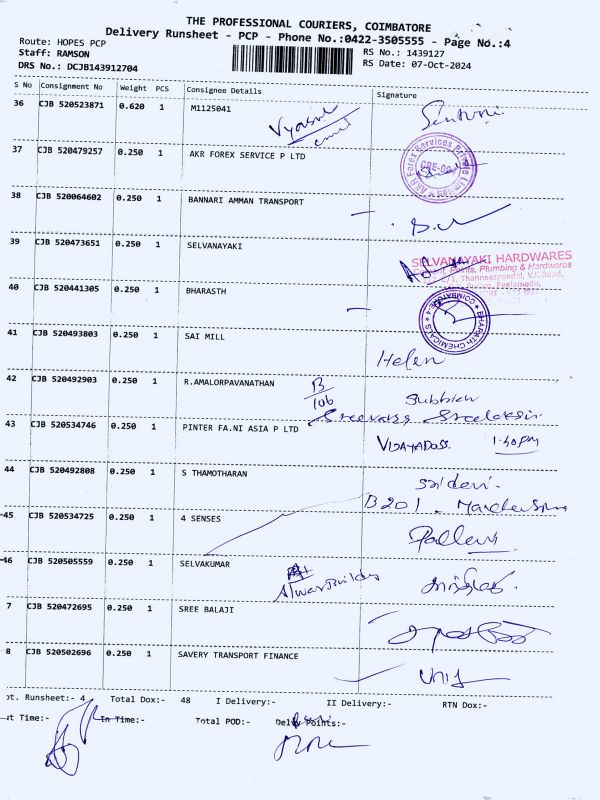 THE PROFESSIONAL COURIERS, COIMBATORE
Delivery Runsheet - PCP - Phone No.:0422-3505555 - Page No.:4
Route: HOPES PCP
RS No.: 1439127
Staff: RAMSON
RS Date: 07-Oct-2024
DRS No.: DCJB143912704
S No Consignment No Weight PCS Consignee Details Signature
36 CJB 520523871 0.620 1 M1125041
37 CJB 520479257 0.250 1 AKR FOREX SERVICE P LTD
AKR Forex Services Private Limited
38 CJB 520064602 0.250 1 BANNARI AMMAN TRANSPORT
39 CJB 520473651 0.250 1 SELVANAYAKI
SELVANAYAKI HARDWARES
Paints, Plumbing & Hardwares
Thanneerpandal, V.K.Road,
Peelamedu,
40 CJB 520441305 0.250 1 BHARASTH
BHARATH CHEMICALS COIMBATORE-4
41 CJB 520493803 0.250 1 SAI MILL
Helen
42 CJB 520492903 0.250 1 R.AMALORPAVANATHAN
B/106
Subbiah
43 CJB 520534746 0.250 1 PINTER FA.NI ASIA P LTD
VIJAYADOSS. 1.40pm
44 CJB 520492808 0.250 1 S THAMOTHARAN
Saidevi.
B 201.
45 CJB 520534725 0.250 1 4 SENSES
Pallavi
46 CJB 520505559 0.250 1 SELVAKUMAR
7 CJB 520472695 0.250 1 SREE BALAJI
8 CJB 520502696 0.250 1 SAVERY TRANSPORT FINANCE
ot. Runsheet:- 4 Total Dox:- 48 I Delivery:- II Delivery:- RTN Dox:-
rt Time:- In Time:- Total POD:- Delv Points:-